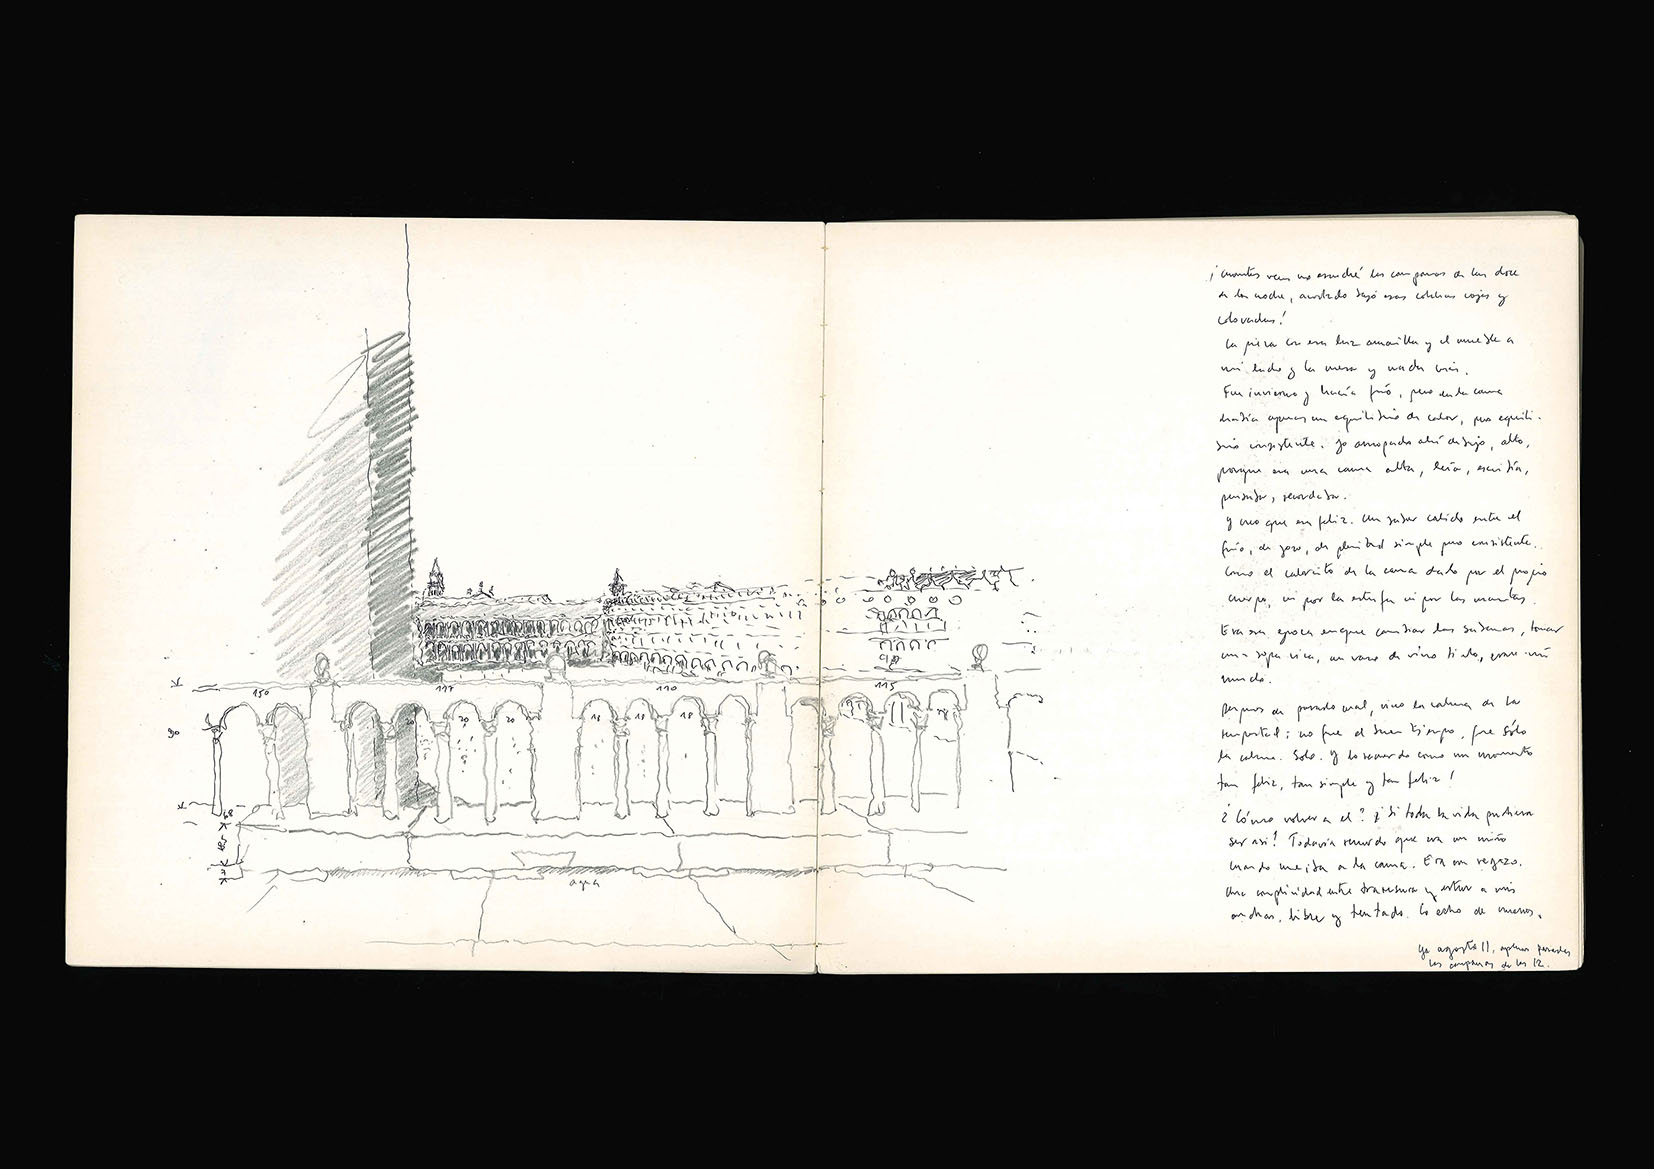 150
117
110
115
90
20
20
20
18
18
18
agua
¡Cuántas veces no escuché las campanas de las doce
de la noche, acostado bajo esas colchas rojas y
coloradas!
La pieza con esa luz amarilla y el mueble a
mi lado y la mesa y nada más.
Fue invierno y hacía frío, pero en la cama
había apenas un equilibrio de calor, pero equili-
brio consistente. Yo arropado ahí debajo, alto,
porque era una cama alta, leía, escribía,
pensaba, recordaba.
Y creo que era feliz. Un sabor cálido entre el
frío, de gozo, de plenitud simple pero consistente.
Como el calorcito de la cama dado por el propio
cuerpo, ni por la estufa ni por las mantas.
Era esa época en que cambiar las sábanas, tomar
una sopa rica, un vaso de vino tinto, eran un
mundo.
Después de pasado aval, vino la calma de la
tempestad: no fue el buen tiempo, fue sólo
la calma. Solo. Y lo recuerdo como un momento
tan feliz, tan simple y tan feliz!
¿Cómo volver a él? ¡Si toda la vida pudiera
ser así! Todavía recuerdo que era un niño
cuando me iba a la cama. Era un regazo.
Una complicidad entre travesura y estar a mis
anchas, libre y tentado. Lo echo de menos.
ya agosto 11, apenas pasadas
las campanas de las 12.